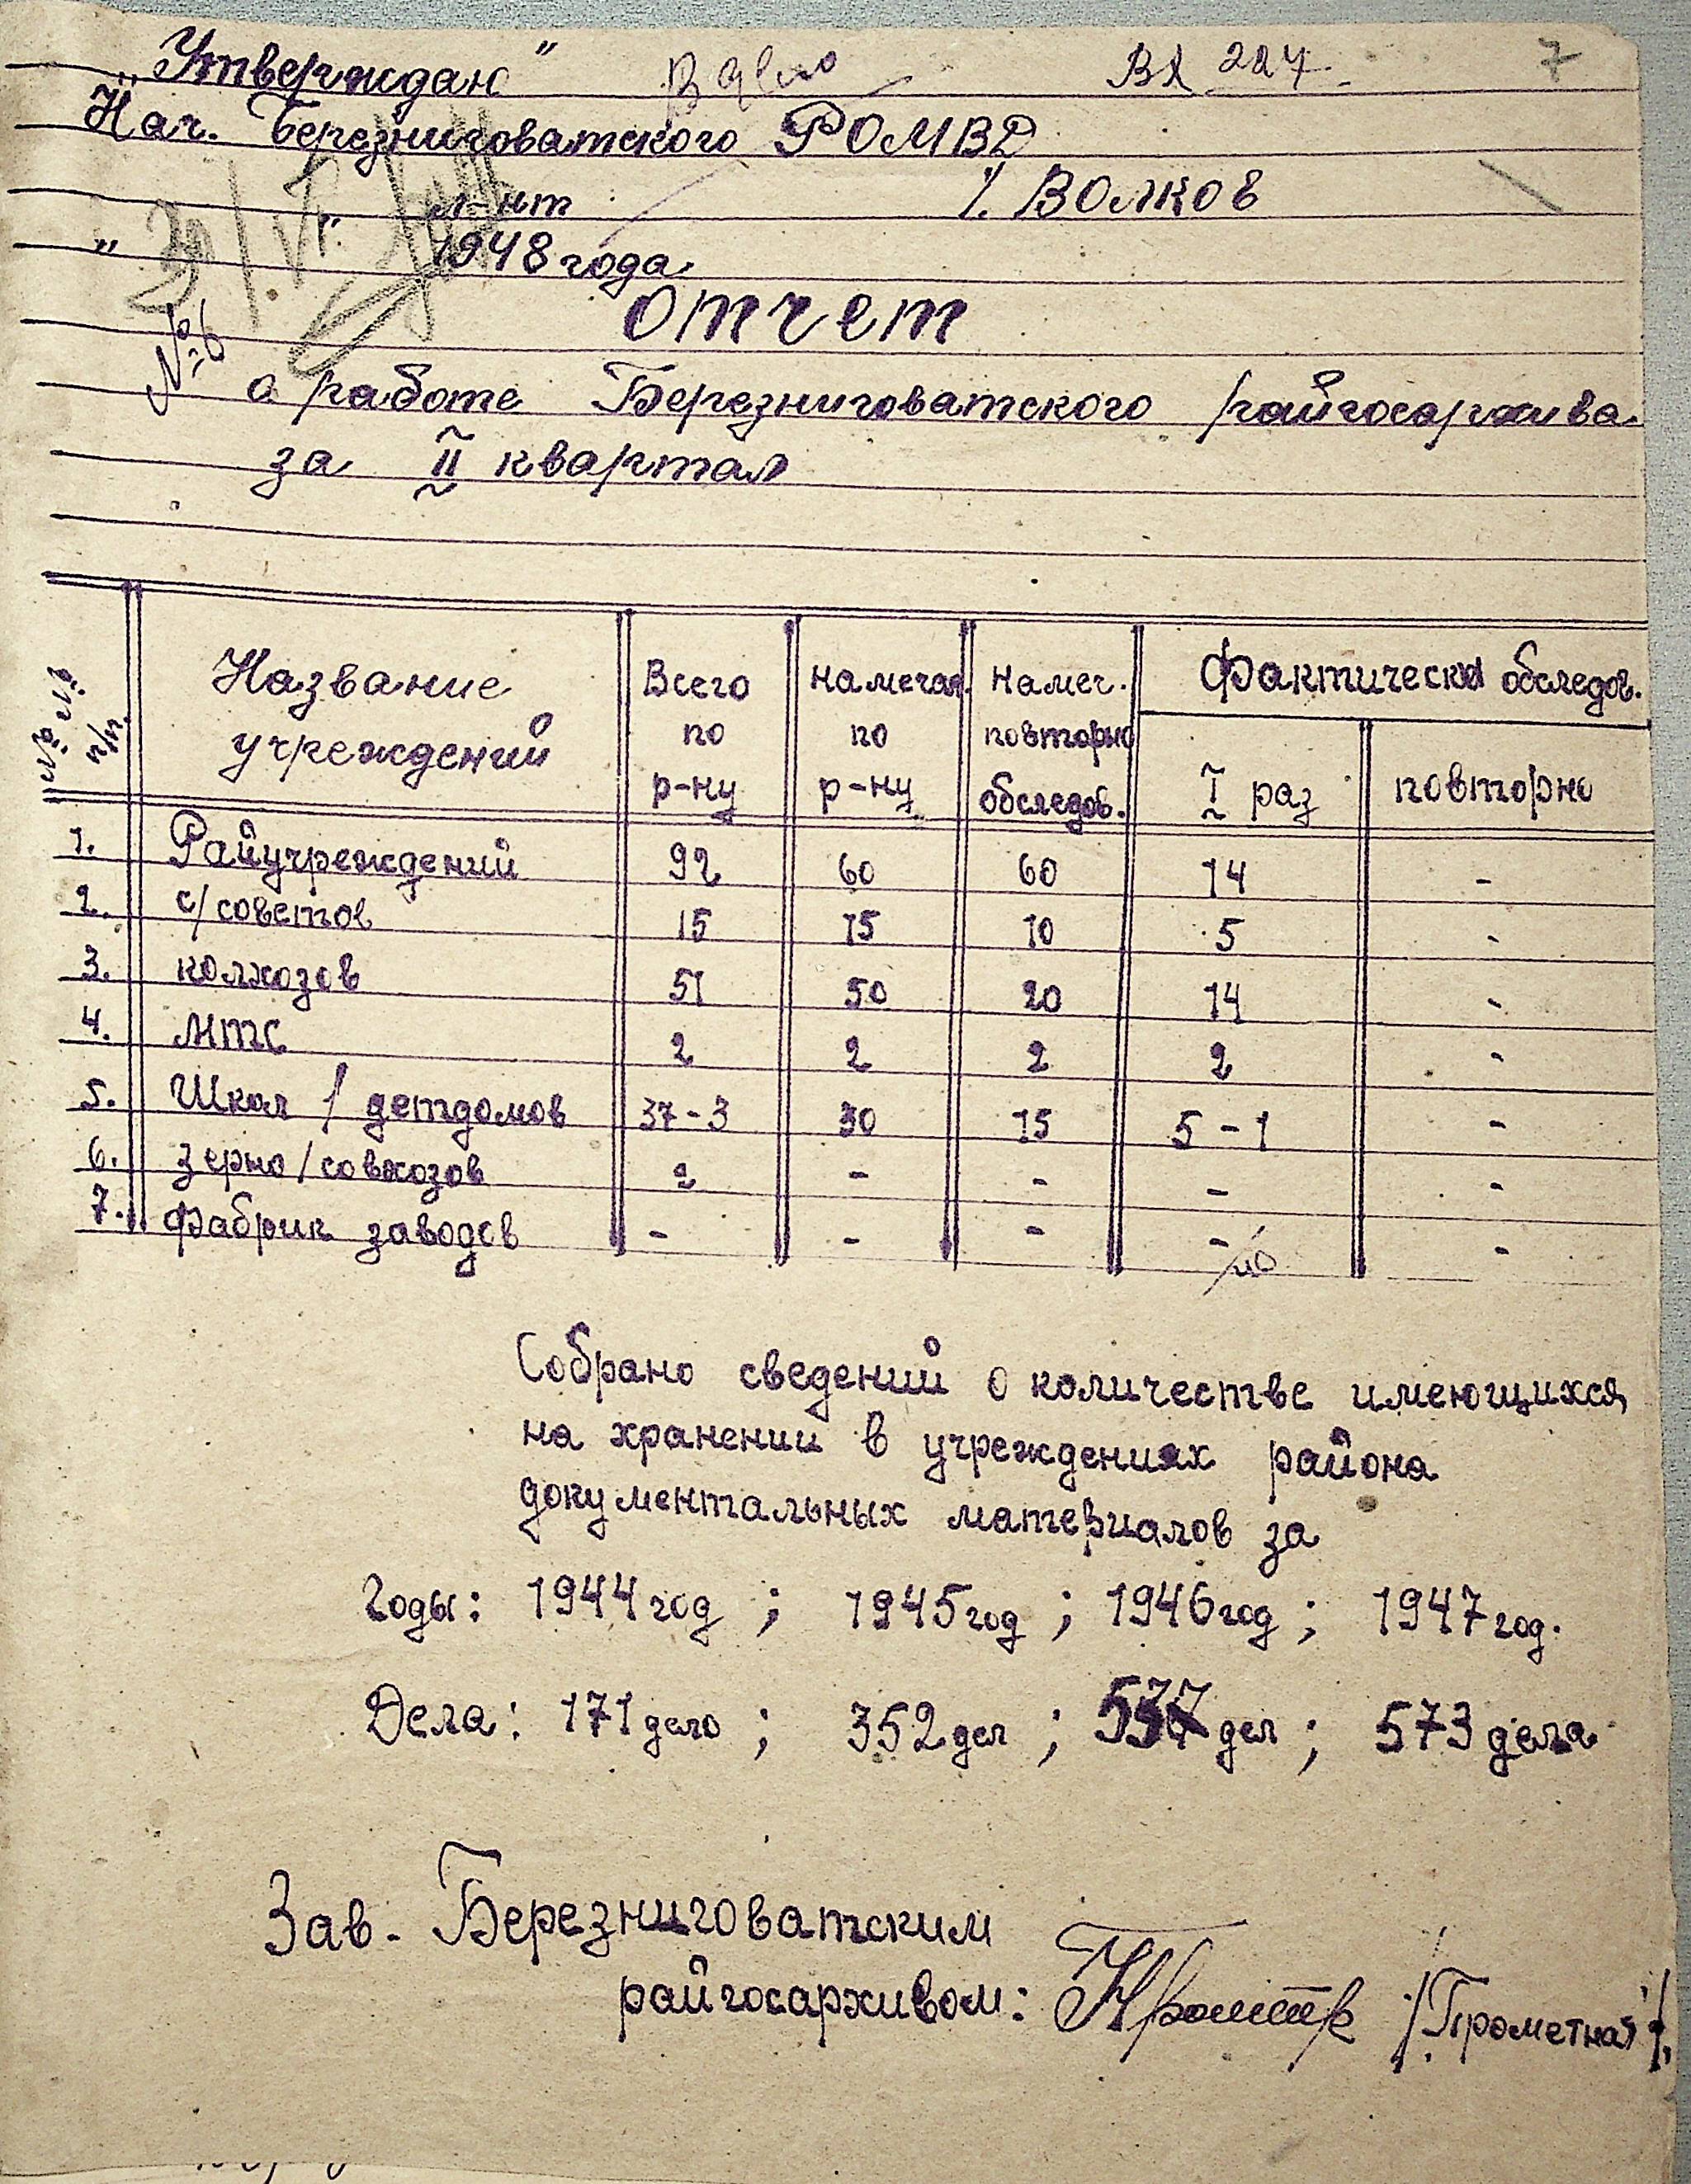 „Утверждаю" Вх 227. 7
Нач. Березниговатского РОМВД
л-нт /. Волков
" " 1948 года.
Отчет
№6
о работе Березниговатского райгосархива
за II квартал
№№ п/п. Название учреждений Всего по р-ну Намечал. по р-ну Намеч. повторно обследов. Фактически обследов. I раз повторно
1. Райучреждений 92 60 60 14 -
2. с/советов 15 15 10 5 -
3. колхозов 51 50 20 14 -
4. МТС 2 2 2 2 -
5. Школ / детдомов 37-3 30 15 5-1 -
6. зерно/совхозов 2 - - - -
7. Фабрик заводов - - - - -
Собрано сведений о количестве имеющихся
на хранении в учреждениях района
документальных материалов за
Годы: 1944 год ; 1945 год ; 1946 год ; 1947 год.
Дела: 171 дело ; 352 дел ; 537 дел ; 573 дела
Зав. Березниговатским
райгосархивом: /Прометная/